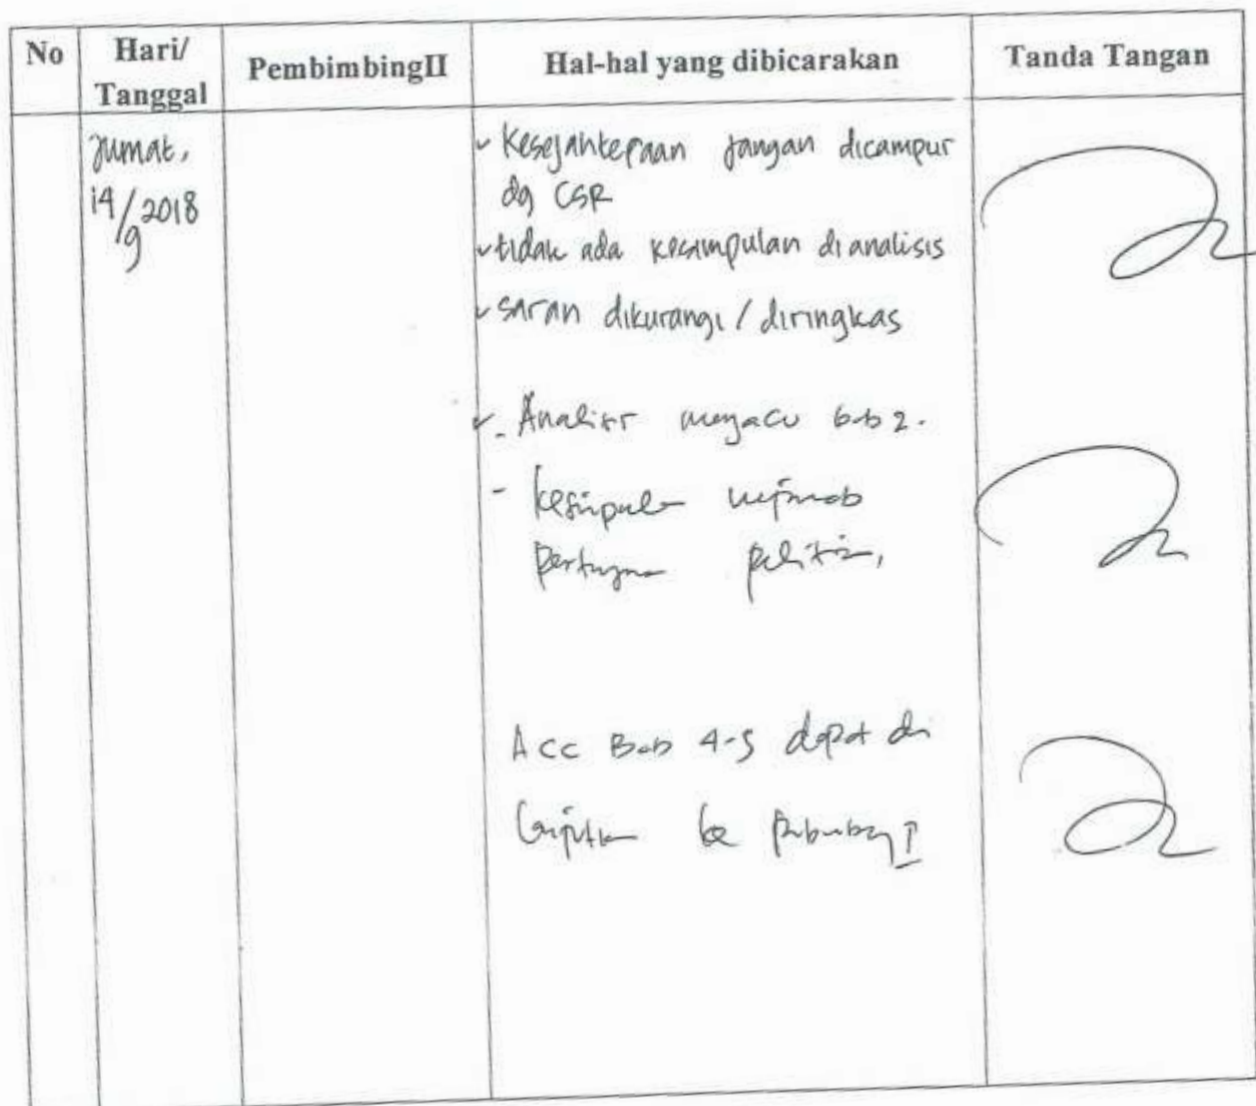 No Hari/ Tanggal PembimbingII Hal-hal yang dibicarakan Tanda Tangan
Jumat,
14/9 2018
Kesejahteraan jangan dicampur
dg CSR
tidak ada kesimpulan di analisis
saran dikurangi / diringkas
- Analisis mengacu bab 2.
- Kesimpulan menjawab
pertanyaan penelitian,
Acc Bab 4-5 dapat di
lanjutkan ke Pembimbing I